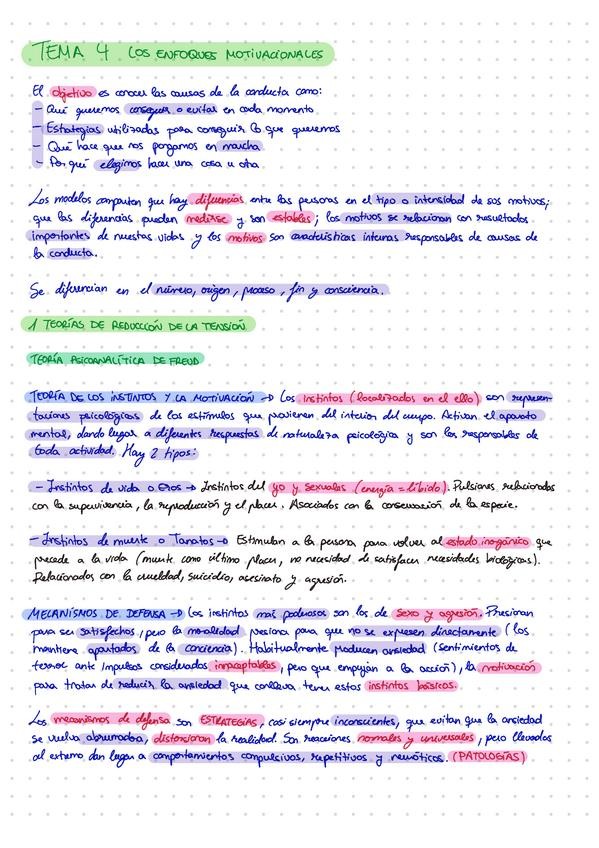 TEMA 4 LOS ENFOQUES MOTIVACIONALES
El objetivo es conocer las causas de la conducta como:
- Qué queremos conseguir o evitar en cada momento
- Estrategias utilizadas para conseguir lo que queremos
- Qué hace que nos pongamos en marcha
- Por qué elegimos hacer una cosa u otra
Los modelos comparten que hay diferencias entre las personas en el tipo o intensidad de sus motivos;
que las diferencias pueden medirse y son estables; los motivos se relacionan con resultados
importantes de nuestras vidas y los motivos son características internas responsables de causas de
la conducta.
Se diferencian en el número, origen, proceso, fin y consciencia.
1 TEORÍAS DE REDUCCIÓN DE LA TENSIÓN
TEORÍA PSICOANALÍTICA DE FREUD
TEORÍA DE LOS INSTINTOS Y LA MOTIVACIÓN → Los instintos (localizados en el ello) son represen-
taciones psicológicas de los estímulos que provienen del interior del cuerpo. Activan el aparato
mental, dando lugar a diferentes respuestas de naturaleza psicológica y son los responsables de
toda actividad. Hay 2 tipos:
- Instintos de vida o Eros → Instintos del yo y sexuales (energía = líbido). Pulsiones relacionadas
con la supervivencia, la reproducción y el placer. Asociados con la conservación de la especie.
- Instintos de muerte o Tanatos → Estimulan a la persona para volver al estado inorgánico que
precede a la vida (muerte como último placer, no necesidad de satisfacer necesidades biológicas).
Relacionados con la crueldad, suicidio, asesinato y agresión.
MECANISMOS DE DEFENSA → Los instintos más poderosos son los de sexo y agresión. Presionan
para ser satisfechos, pero la moralidad presiona para que no se expresen directamente (los
mantiene apartados de la conciencia). Habitualmente producen ansiedad (sentimientos de
terror ante impulsos considerados inaceptables, pero que empujan a la acción), la motivación
para tratar de reducir la ansiedad que conlleva tener estos instintos básicos.
Los mecanismos de defensa son ESTRATEGIAS, casi siempre inconscientes, que evitan que la ansiedad
se vuelva abrumadora, distorsionan la realidad. Son reacciones normales y universales, pero llevados
al extremo dan lugar a comportamientos compulsivos, repetitivos y neuróticos. (PATOLOGÍAS)